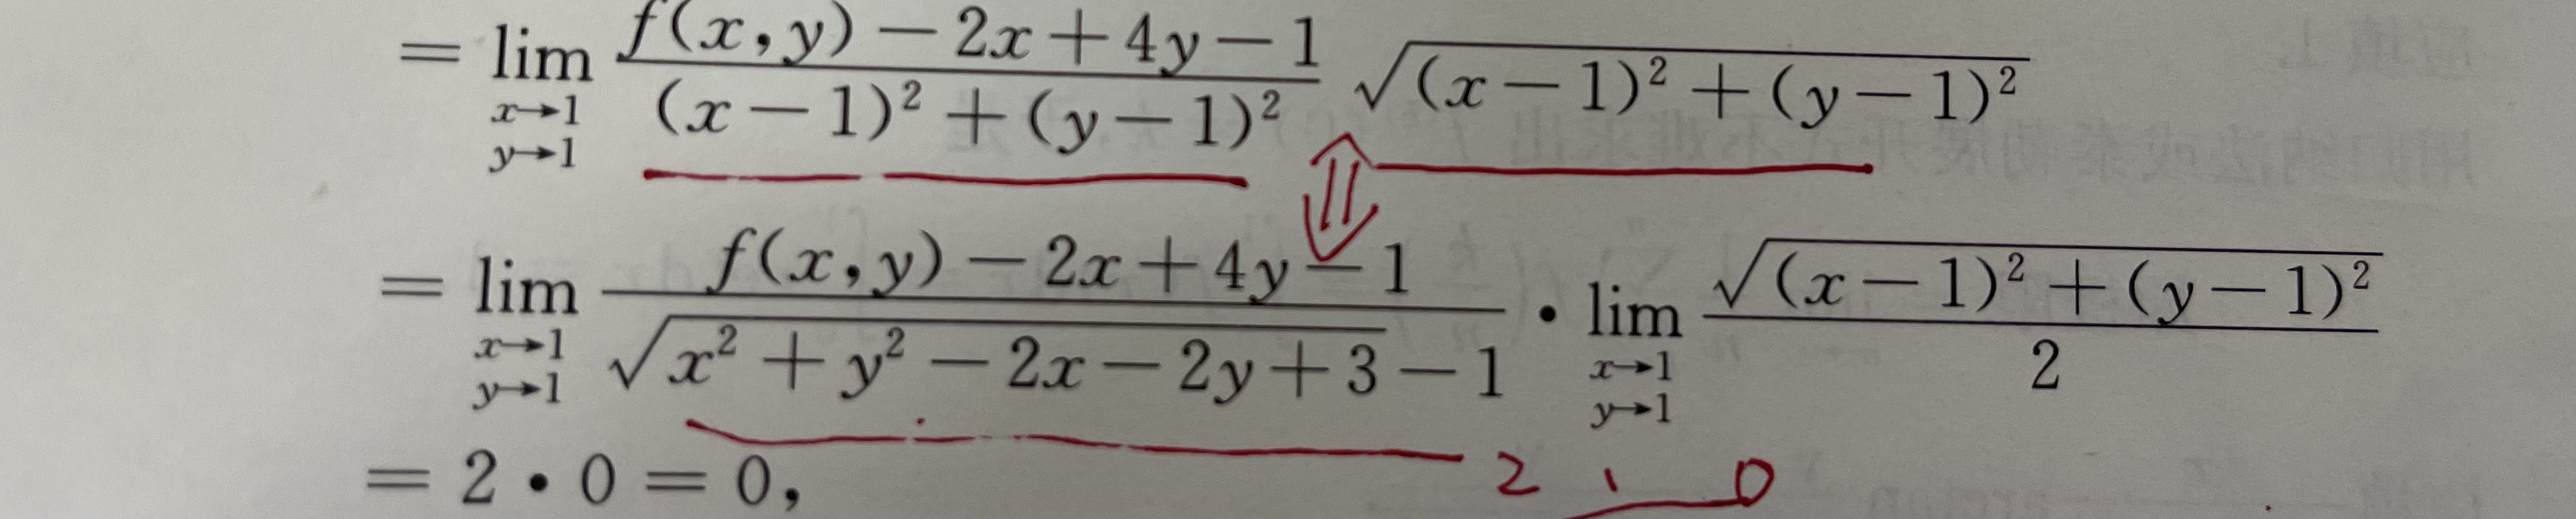 = lim_{x→1, y→1} \frac{f(x,y)-2x+4y-1}{(x-1)^2+(y-1)^2} \sqrt{(x-1)^2+(y-1)^2}
= lim_{x→1, y→1} \frac{f(x,y)-2x+4y-1}{\sqrt{x^2+y^2-2x-2y+3}-1} · lim_{x→1, y→1} \frac{\sqrt{(x-1)^2+(y-1)^2}}{2}
= 2 · 0 = 0,
2 · 0